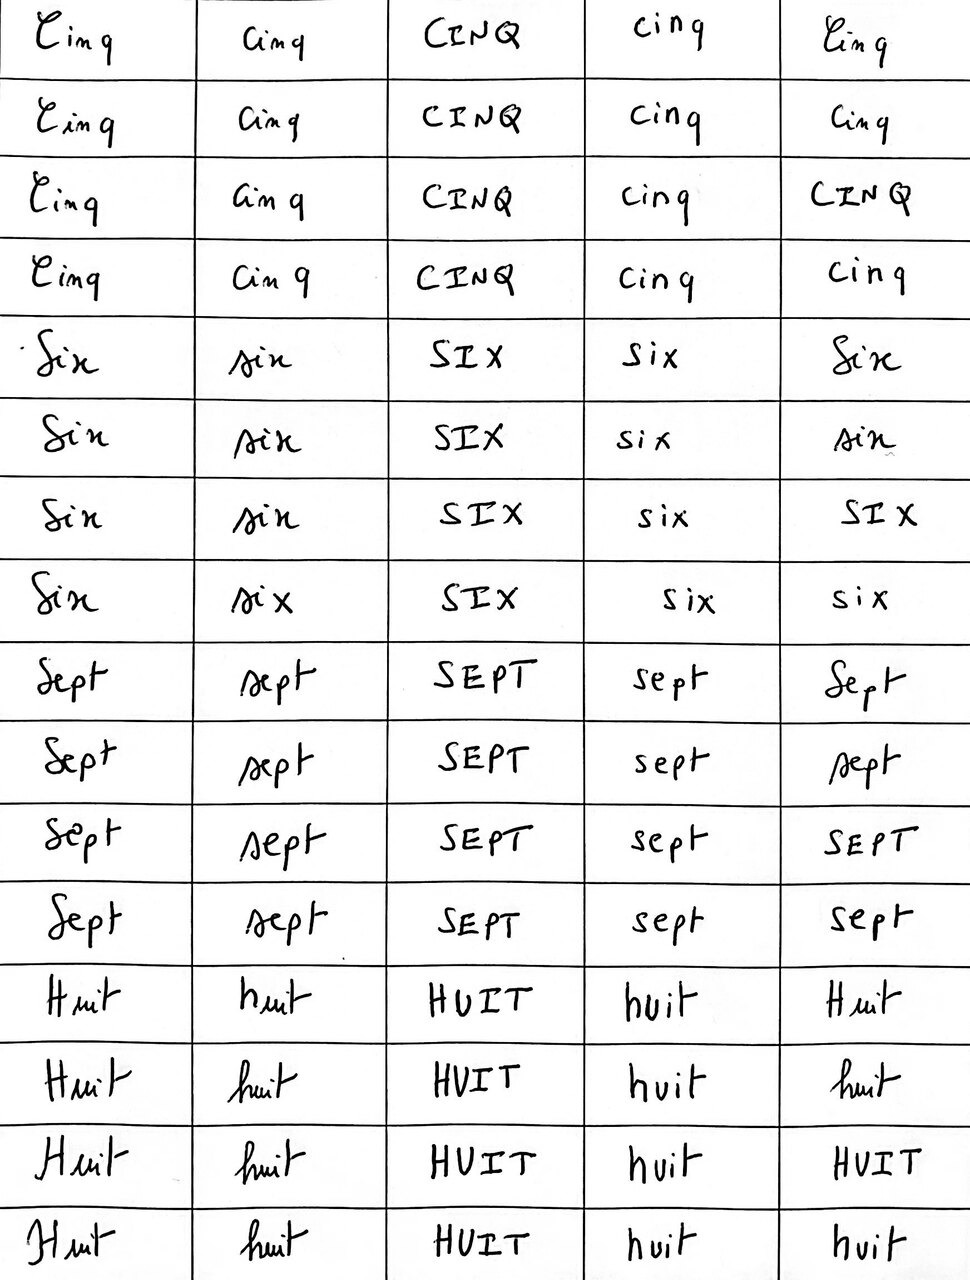 Cinq cinq CINQ cinq Cinq
Cinq cinq CINQ cinq cinq
Cinq cinq CINQ cinq CINQ
Cinq cinq CINQ cinq cinq
Six six SIX six Six
Six six SIX six six
Six six SIX six SIX
Six six SIX six six
Sept sept SEPT sept Sept
Sept sept SEPT sept sept
Sept sept SEPT sept SEPT
Sept sept SEPT sept sept
Huit huit HUIT huit Huit
Huit huit HUIT huit huit
Huit huit HUIT huit HUIT
Huit huit HUIT huit huit